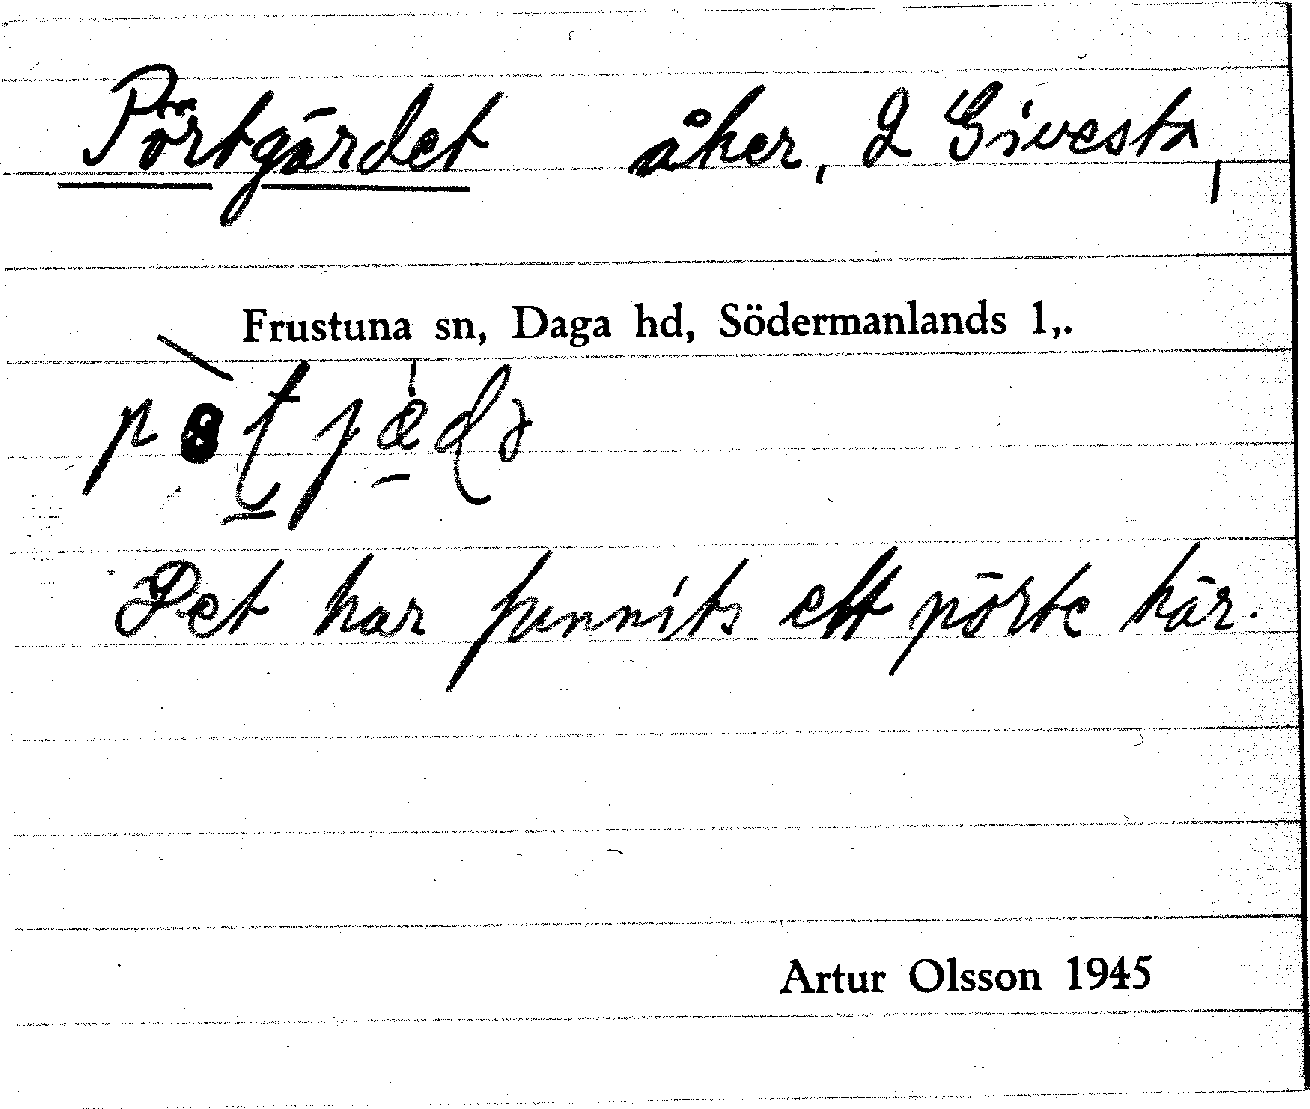 Pörtgärdet åker, L Givesta,
Frustuna sn, Daga hd, Södermanlands l,.
Det har funnits ett pörte här.
Artur Olsson 1945